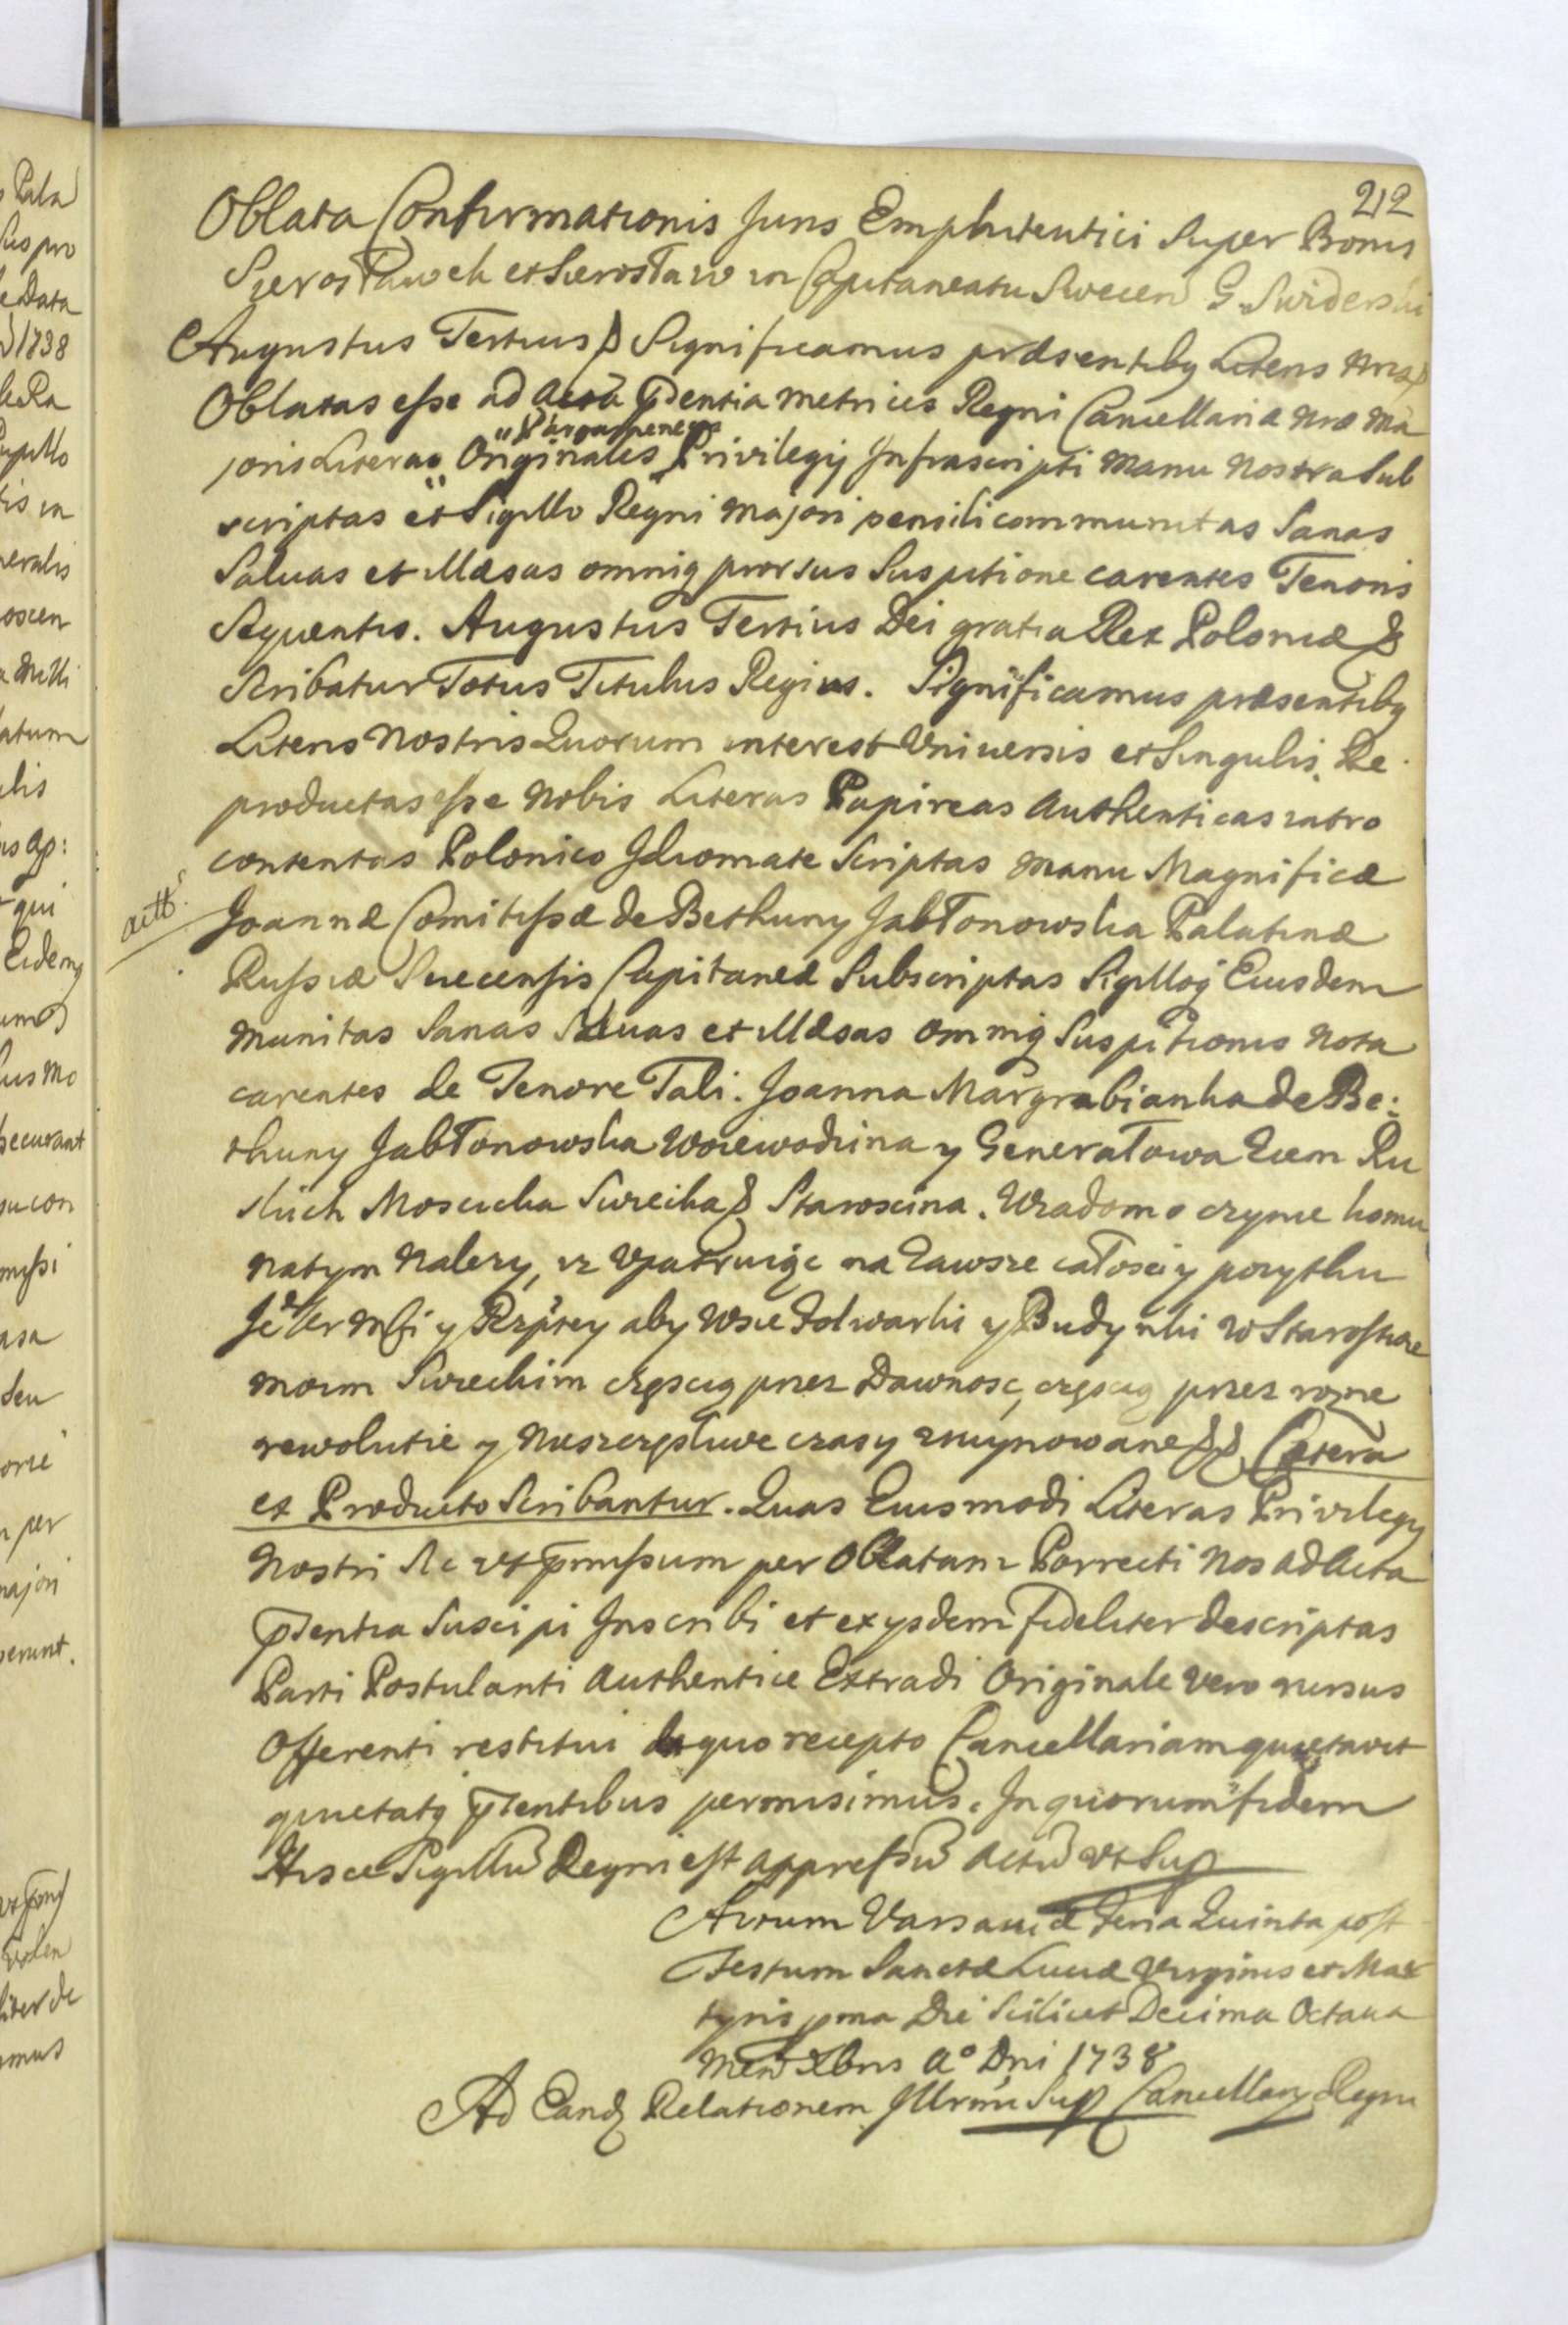 212
Oblata Confirmationis Juris Emphiteutici Super Bonis
Sierosławek et Sierosław in Capitaneatu Swecen G. Swiderski
Augustus Tertius Significamus præsentibq Literis nris
Oblatas esse ad acta pñtentia metrices Regni Cancellariæ nræ Ma
joris Literas Originales Pargameneas Privilegij Infrascripti manu nostra Sub
scriptas et Sigillo Regni majori pensili communitas Sanas
Saluas et Illæsas omniq prorsus Suspitione carentes Tenoris
Sequentis. Augustus Tertius Dei gratia Rex Poloniæ &
Scribatur Totus Titulus Regius. Significamus præsentibq
Literis Nostris Quorum interest Vniuersis et Singulis. Re
productas esse nobis Literas Papireas Authenticas intro
contentas Polonico Idiomate Scriptas manu Magnificæ
actt.
Joannæ Comitissæ de Bethuny Jabłonowska Palatinæ
Russiæ Swecensis Capitaneæ Subscriptas Sigilloq Eiusdem
munitas Sanas Saluas et Illæsas omniq Suspitionis nota
carentes de Tenore Tali. Joanna Margrabianka de Be:
thuny Jabłonowska Woiewodzina y Generałowa Ziem Ru
skich Moscicka Swiecka & Staroscina. Wiadomo czynie komu
natym nalezy, iz vpatruiąc na zawsze całosci y pozytku
JeKr Msci y Rzptey aby wsie Folwarki y Budynki w Starostwie
moim Swieckim częscią przez Dawnosc, częscią przez rozne
rewolutie y nieszczęsliwe czasy zruynowane && Cætera
ex Producto Scribantur. Quas Eiusmodi Literas Privilegij
Nostri Ac vt pmissum per Oblatam Porrecti Nos ad Acta
pñtentia Suscipi Inscribi et ex ysdem fideliter descriptas
Parti Postulanti Authentice Extradi Originale vero rursus
Offerenti restitui de quo recepto Cancellariam quietavit
quietatq pñtentibus permisimus. In quorum fidem
Hisce Sigillũ Regni est appressũ Actũ vt Sup
Actum Varsauiæ Feria Quinta post
Festum Sanctæ Luciæ Virginis et Mar
tyris pma Die Scilicet Decima Octaua
Mens Xbris Aº Dni 1738
Ad Eandq Relationem Illrmi Sup Cancellarij Regni